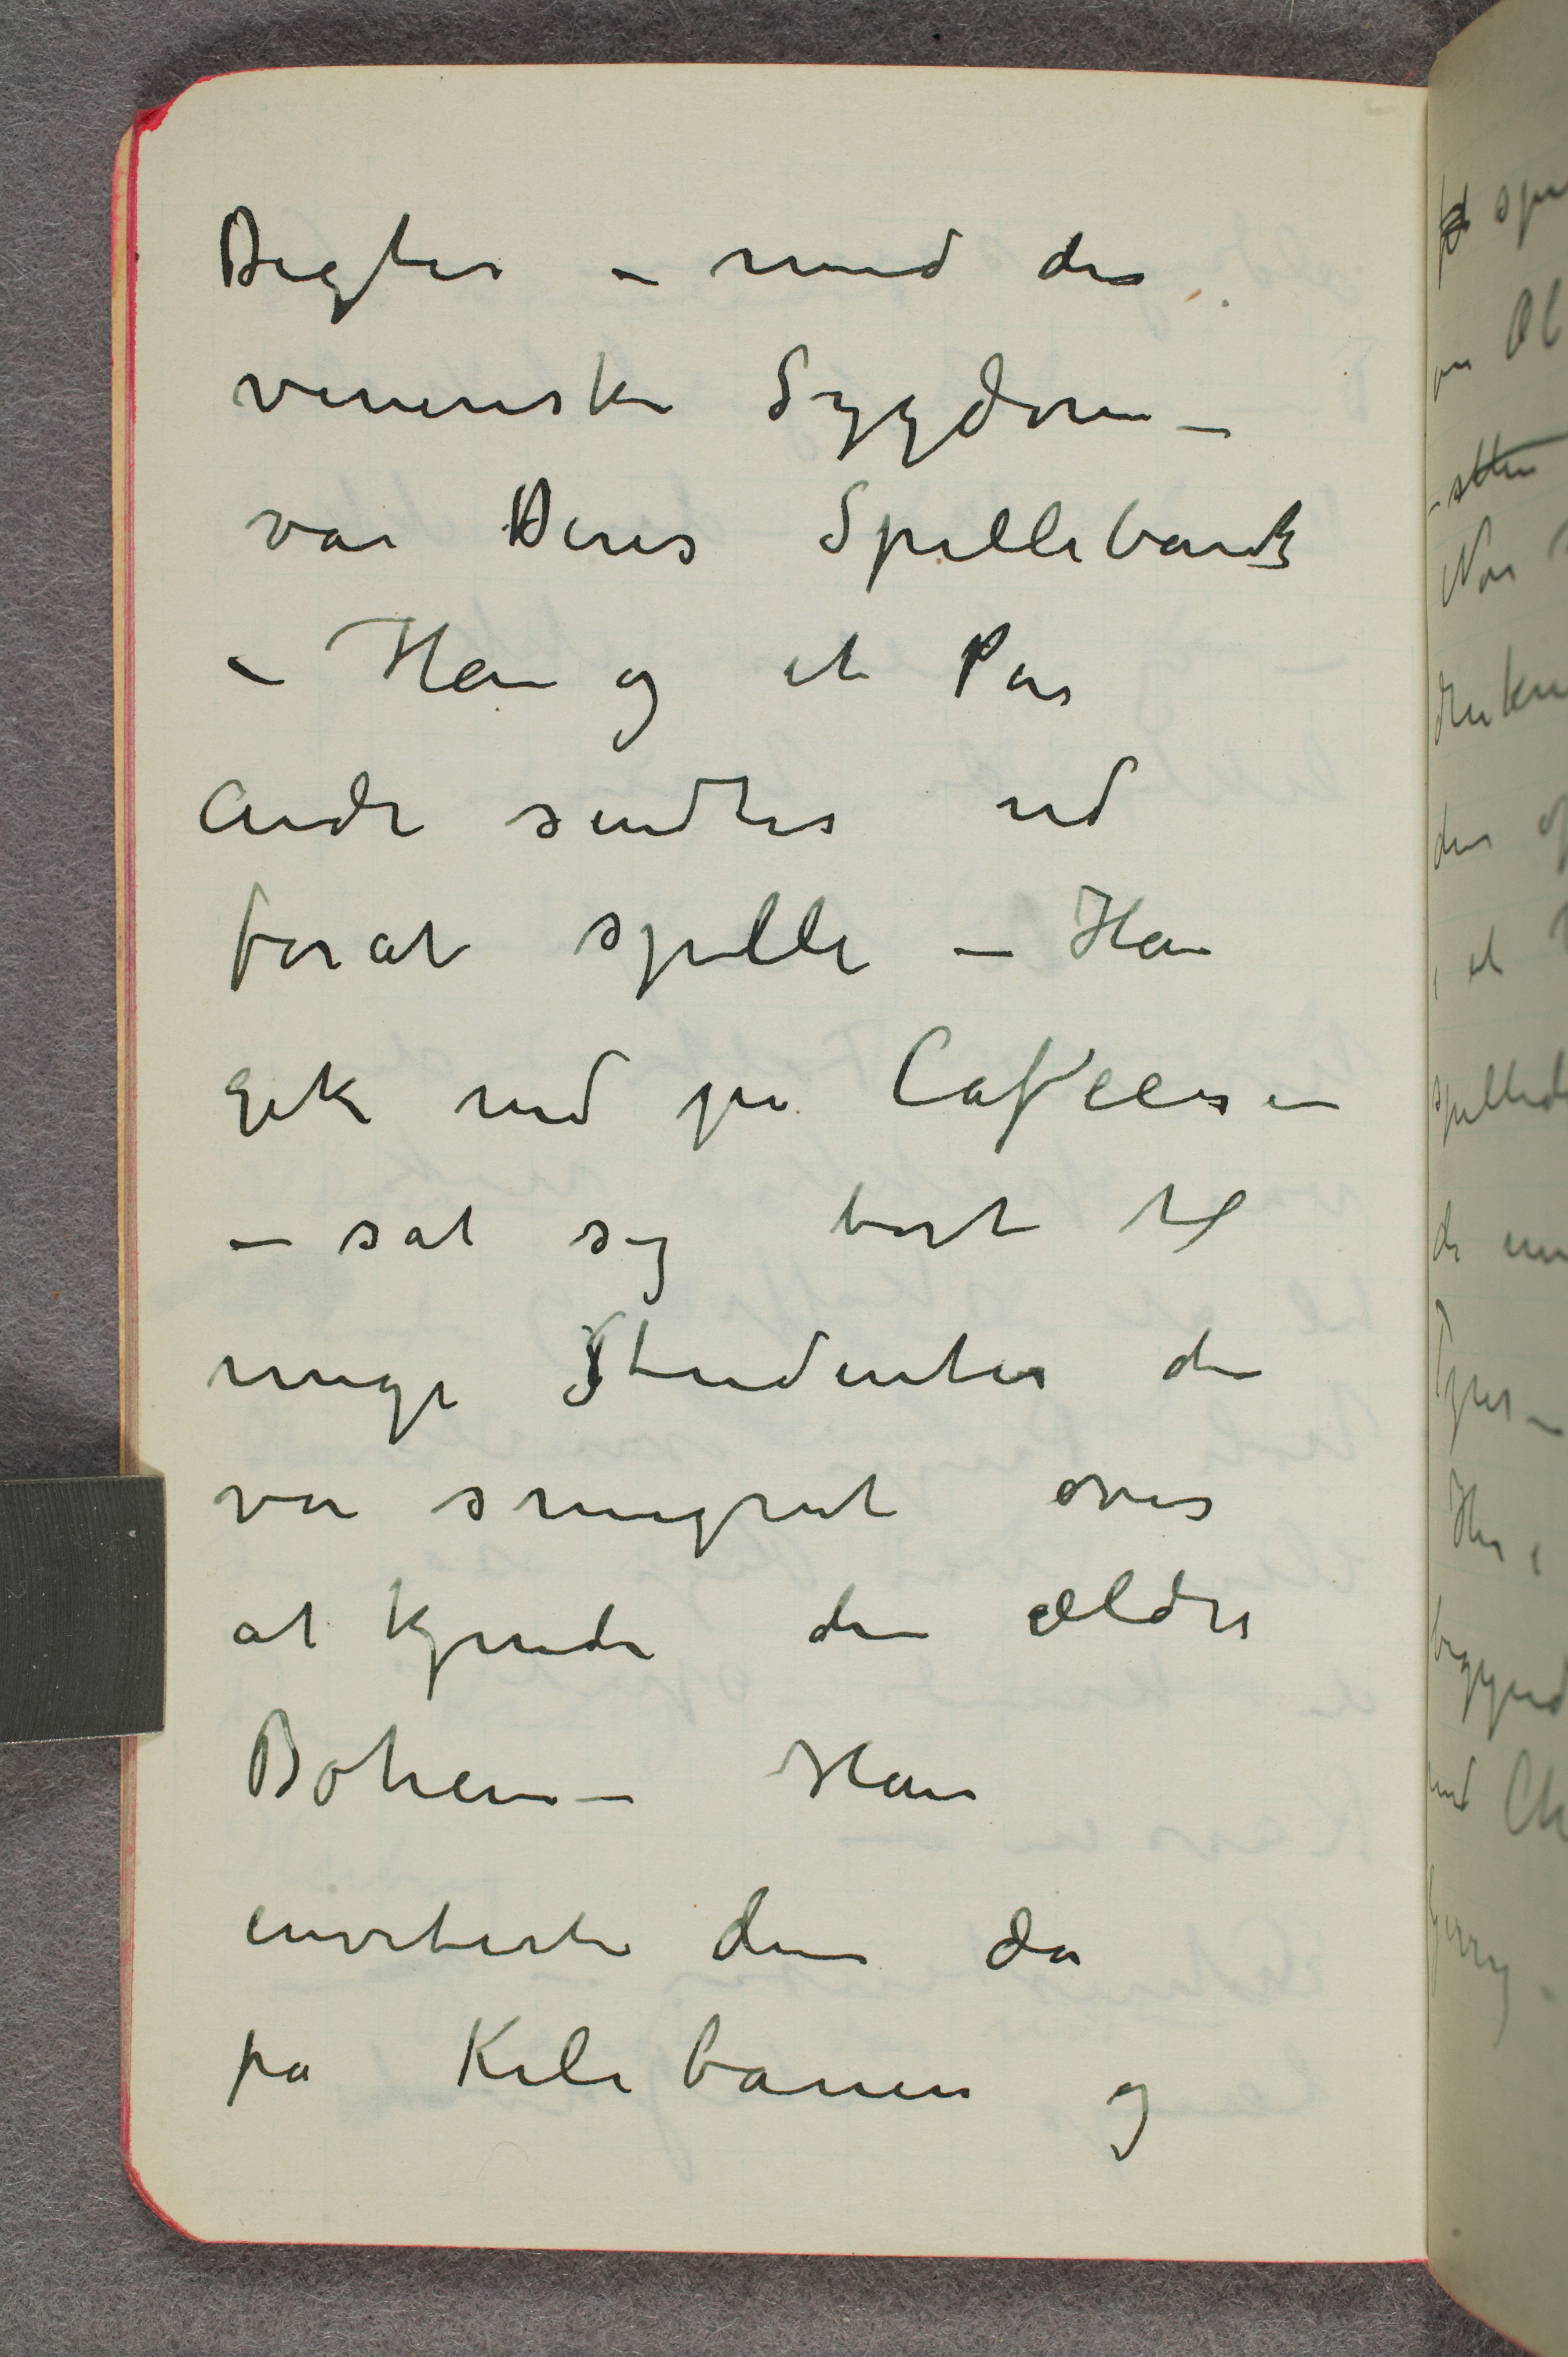 Digter – med den
veneriske Sygdom –
var Deres Spillebank
– Han og et Par
Andre sendtes ud
forat spille – Han
gik ned på Cafeen –
– sat sig bort til
unge Studenter der
var smigret over
at kjende den ældre
Bohem – Han
inviterte dem da
på Keilebanen og